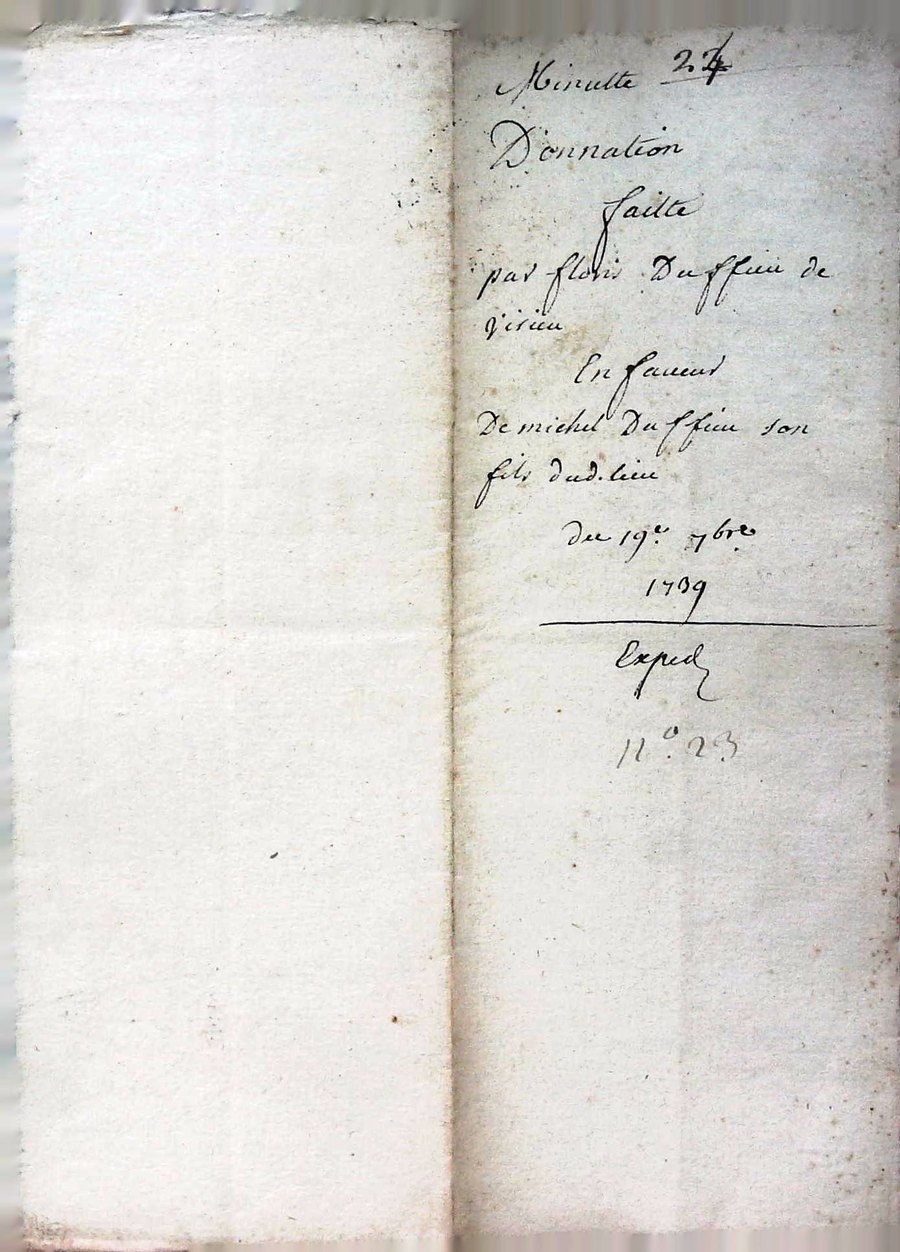 Minutte 24
Donnation
faitte
par floris Duffieu de
virieu
En faveur
De michel Duffieu son
fils dud. lieu
du 19e. 7bre.
1739
Exped
n°. 23